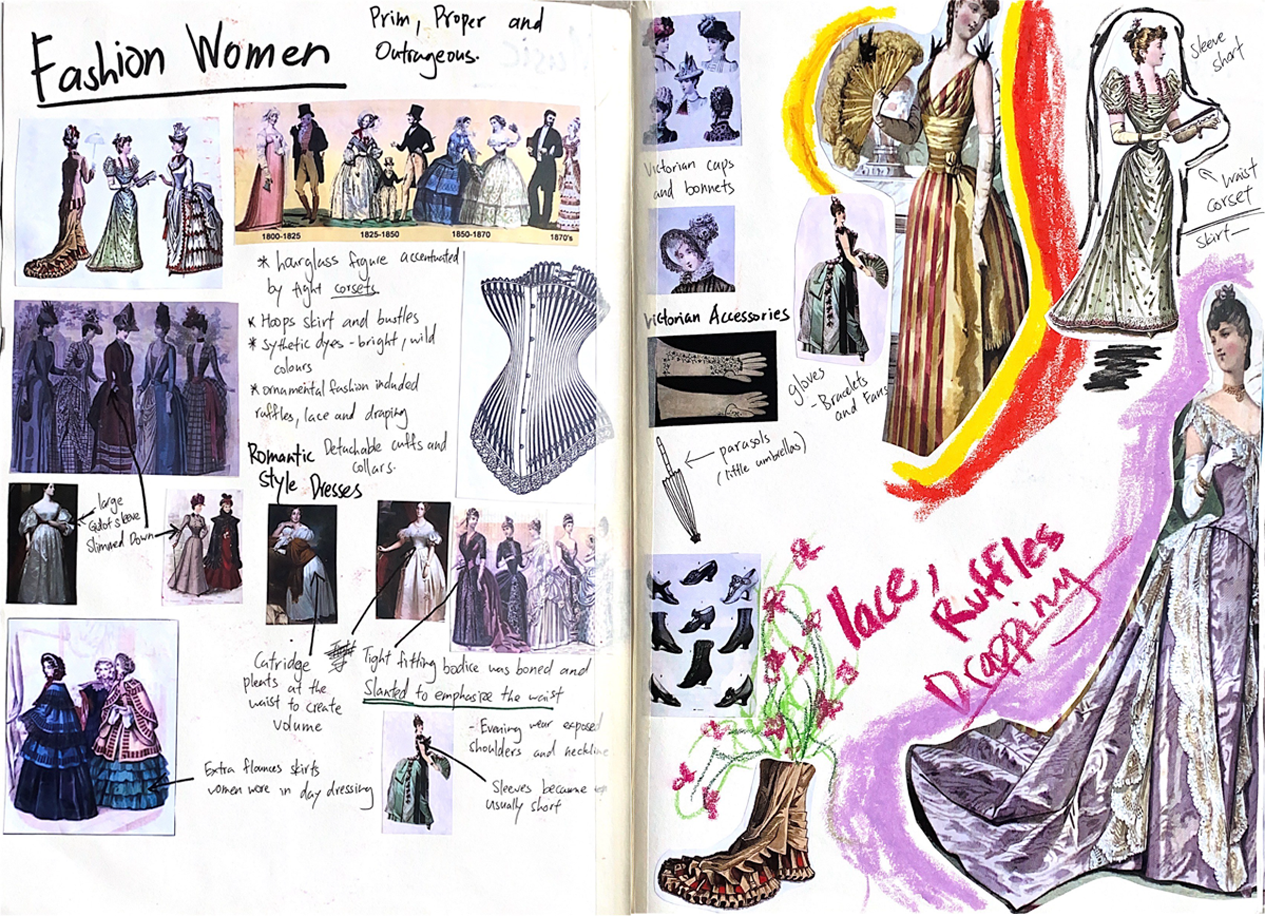 Fashion Women
Prim, Proper and
Outrageous.
1800-1825
1825-1850
1850-1870
1870's
* hourglass figure accentuated
by tight corsets
* Hoops skirt and bustles
* Sythetic dyes - bright, wild
colours
* ornamental fashion included
ruffles, lace and draping
Detachable cuffs and
collars.
Romantic
Style Dresses
- large
Gigot sleeve
Slimmed Down
Catridge
pleats at the
waist to create
volume
Tight fitting bodice was boned and
Slanted to emphasize the waist
- Evening wear exposed
shoulders and neckline
Sleeves became
usually short
Extra flounces skirts
women wore in day dressing
Victorian caps
and bonnets
Victorian Accessories
gloves
- Bracelets
and Fans
parasols
(little umbrellas)
Sleeve
short
Waist
corset
skirt-
lace,
Ruffles
Drapping